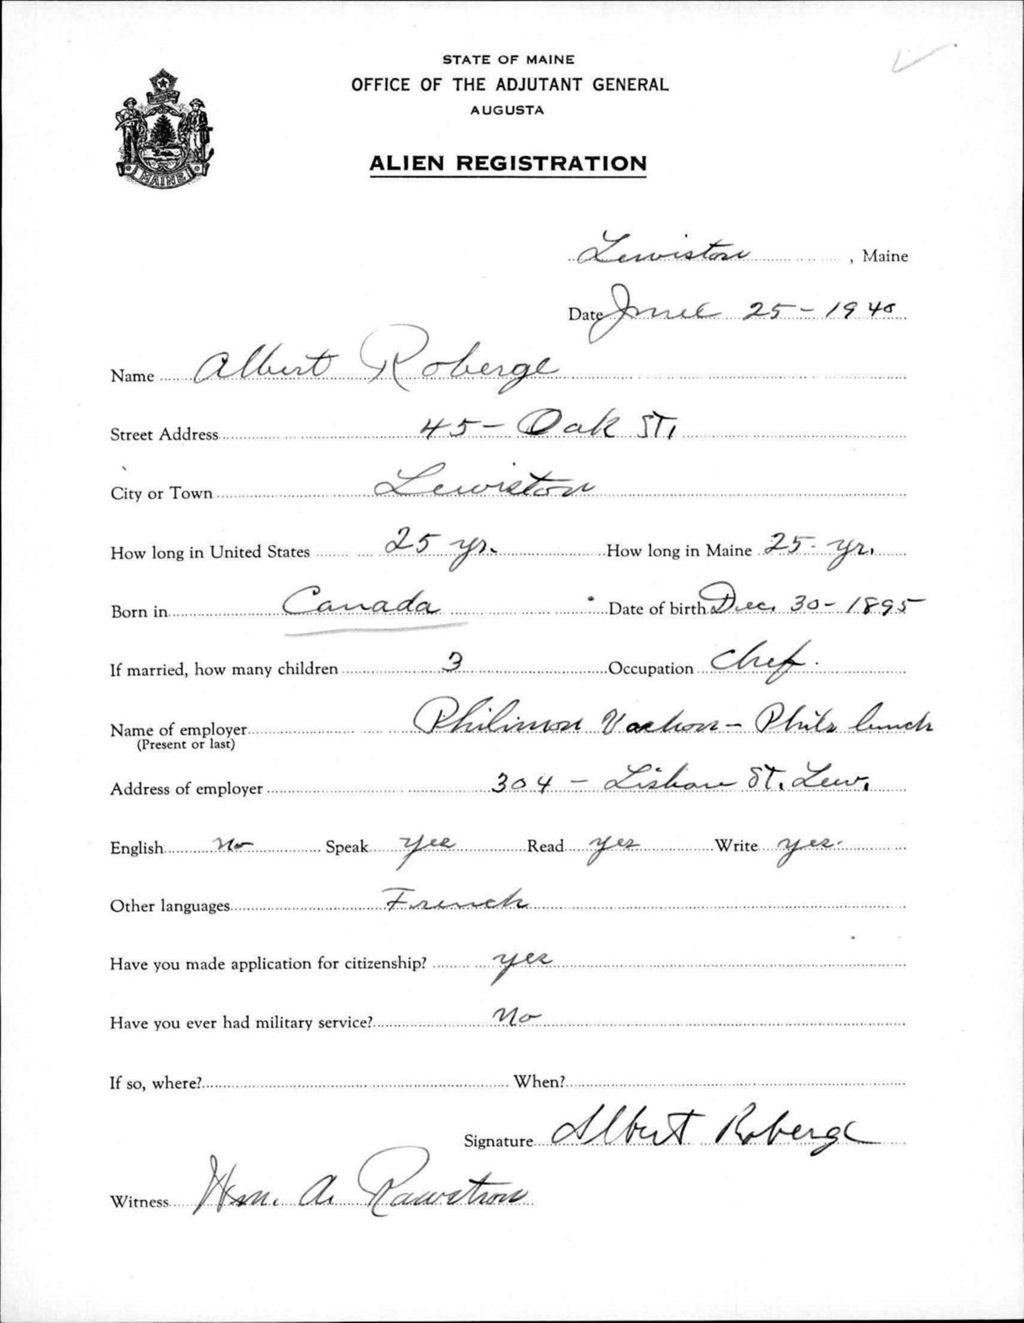 STATE OF MAINE
OFFICE OF THE ADJUTANT GENERAL
AUGUSTA
MAINE
ALIEN REGISTRATION
Lewiston, Maine
Date June 25 - 1940
Name Albert Roberge
Street Address 45 - Oak St,
City or Town Lewiston
How long in United States 25 yr. How long in Maine 25 - yr,
Born in Canada Date of birth Dec, 30 - 1895
If married, how many children 3 Occupation Chef.
Name of employer Philimon Vachon - Phils lunch
(Present or last)
Address of employer 304 - Lisbon St. Lew.
English No Speak yes Read yes Write yes.
Other languages French
Have you made application for citizenship? yes
Have you ever had military service? No
If so, where? When?
Signature Albert Roberge
Witness Wm. A. Rawstron